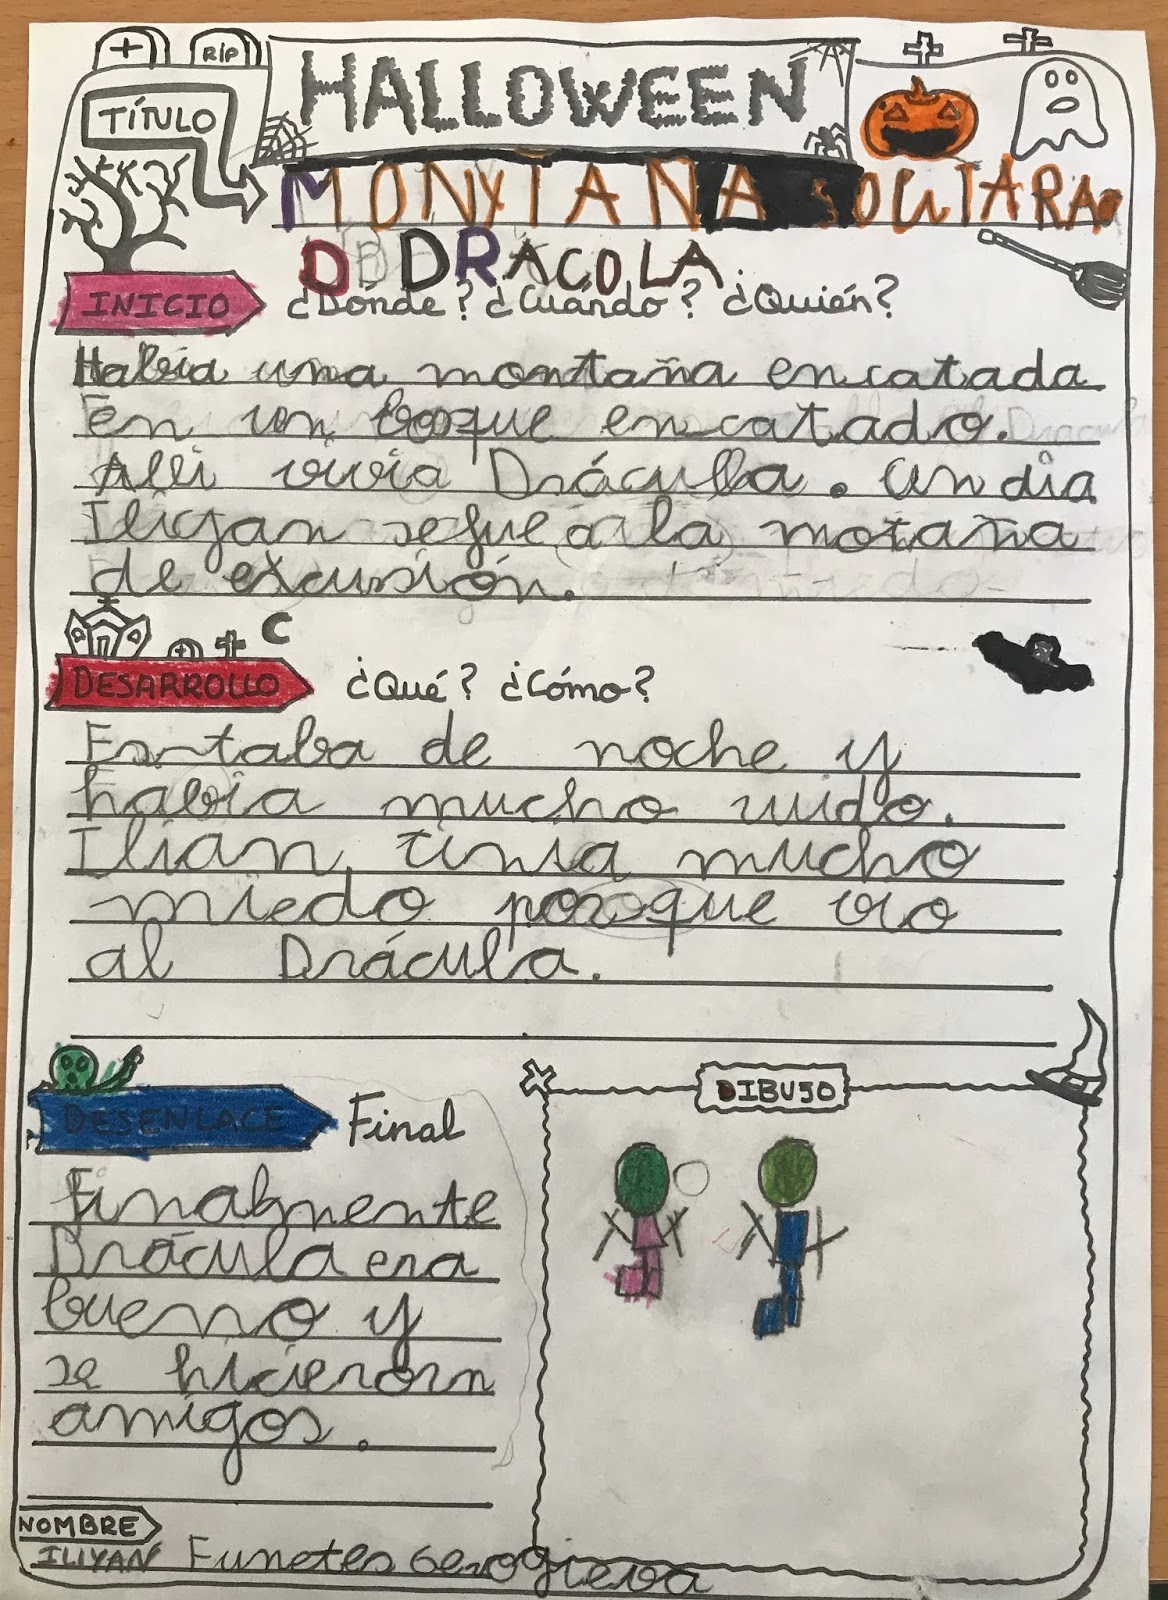 RIP
HALLOWEEN
TÍTULO
MONXTANA SOLITARA
D DRACOLA
INICIO ¿Dónde? ¿Cuándo? ¿Quién?
Habia una montaña encatada
En un bosque encatado.
Alli vivia Drácula. Un dia
Iliyan se fue a la motaña
de excusión.
DESARROLLO ¿Qué? ¿Cómo?
Estaba de noche y
habia mucho ruido.
Ilian tinia mucho
miedo porque vio
al Drácula.
DESENLACE Final
DIBUJO
Finalmente
Drácula era
bueno y
se hicieron
amigos.
NOMBRE
ILIYAN Funetes Gerogieva